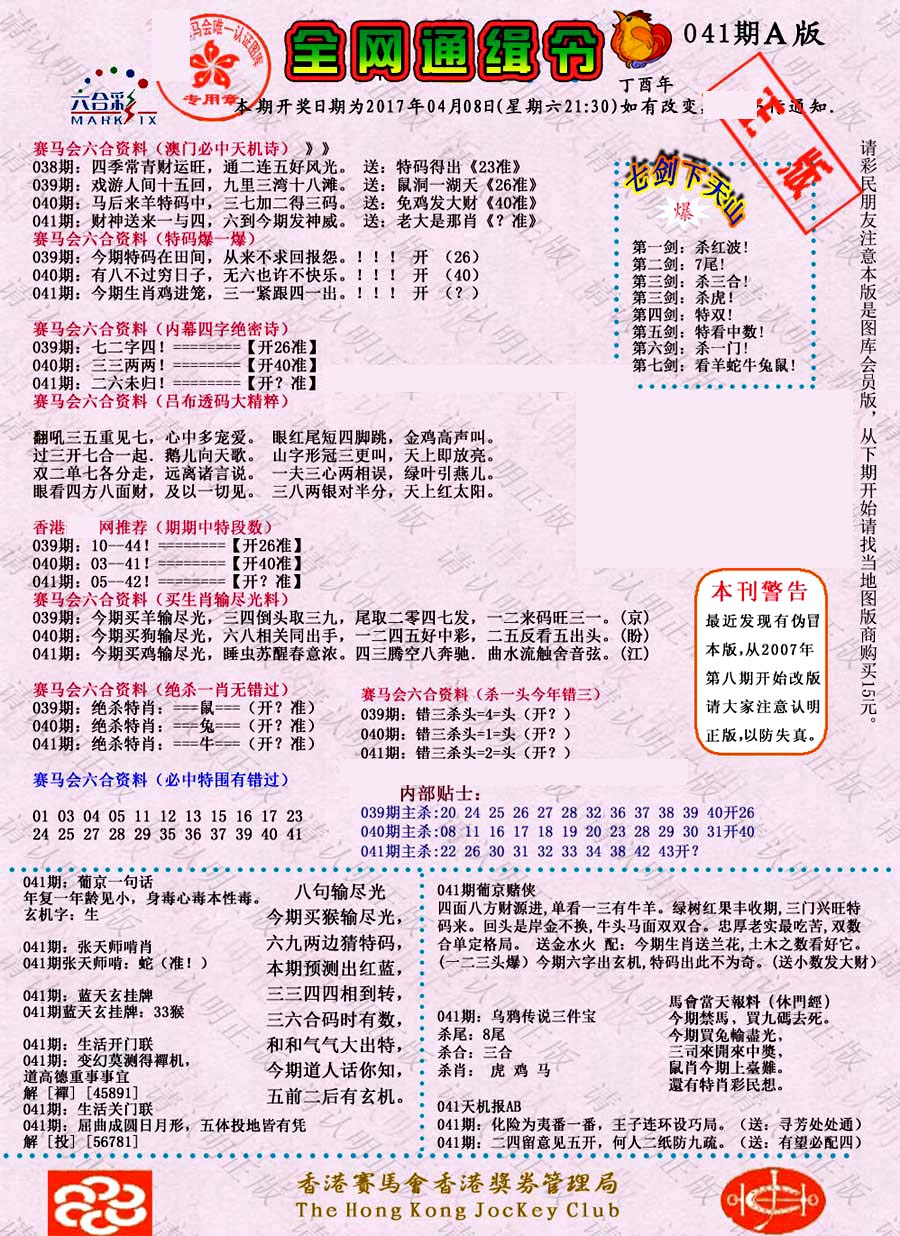 全网通缉令
041期A版
丁酉年
马会唯一认证图库
专用章
六合彩
MARK SIX
本期开奖日期为2017年04月08日(星期六21:30)如有改变,
通知.
正版
赛马会六合资料（澳门必中天机诗）》》
038期：四季常青财运旺，通二连五好风光。 送：特码得出《23准》
039期：戏游人间十五回，九里三湾十八滩。 送：鼠洞一湖天《26准》
040期：马后来羊特码中，三七加二得三码。 送：免鸡发大财《40准》
041期：财神送来一与四，六到今期发神威。 送：老大是那肖《？准》
赛马会六合资料（特码爆一爆）
039期：今期特码在田间，从来不求回报怨。！！！ 开 （26）
040期：有八不过穷日子，无六也许不快乐。！！！ 开 （40）
041期：今期生肖鸡进笼，三一紧跟四一出。！！！ 开 （？）
七剑下天山
爆
第一剑：杀红波！
第二剑：7尾！
第三剑：杀三合！
第三剑：杀虎！
第四剑：特双！
第五剑：特看中数！
第六剑：杀一门！
第七剑：看羊蛇牛兔鼠！
请彩民朋友注意本版是图库会员版，从下期开始请找当地图版商购买15元。
赛马会六合资料（内幕四字绝密诗）
039期：七二字四！========【开26准】
040期：三三两两！========【开40准】
041期：二六未归！========【开？准】
赛马会六合资料（吕布透码大精粹）
翻吼三五重见七，心中多宠爱。 眼红尾短四脚跳，金鸡高声叫。
过三开七合一起．鹅儿向天歌。 山字形冠三更叫，天上即放亮。
双二单七各分走，远离诸言说。 一夫三心两相误，绿叶引燕儿。
眼看四方八面财，及以一切见。 三八两银对半分，天上红太阳。
香港 网推荐（期期中特段数）
039期：10--44！========【开26准】
040期：03--41！========【开40准】
041期：05--42！========【开？准】
赛马会六合资料（买生肖输尽光料）
039期：今期买羊输尽光，三四倒头取三九，尾取二零四七发，一二来码旺三一。(京)
040期：今期买狗输尽光，六八相关同出手，一二四五好中彩，二五反看五出头。(盼)
041期：今期买鸡输尽光，睡虫苏醒春意浓。四三腾空八奔驰．曲水流触舍音弦。(江)
本刊警告
最近发现有伪冒
本版,从2007年
第八期开始改版
请大家注意认明
正版,以防失真。
赛马会六合资料（绝杀一肖无错过）
039期：绝杀特肖：===鼠===（开？准）
040期：绝杀特肖：===兔===（开？准）
041期：绝杀特肖：===牛===（开？准）
赛马会六合资料（杀一头今年错三）
039期：错三杀头=4=头（开？）
040期：错三杀头=1=头（开？）
041期：错三杀头=2=头（开？）
赛马会六合资料（必中特围有错过）
01 03 04 05 11 12 13 15 16 17 23
24 25 27 28 29 35 36 37 39 40 41
内部贴士：
039期主杀:20 24 25 26 27 28 32 36 37 38 39 40开26
040期主杀:08 11 16 17 18 19 20 23 28 29 30 31开40
041期主杀:22 26 30 31 32 33 34 38 42 43开?
041期：葡京一句话
年复一年龄见小，身毒心毒本性毒。
玄机字：生
041期：张天师啃肖
041期张天师啃：蛇（准！）
041期：蓝天玄挂牌
041期蓝天玄挂牌：33猴
041期：生活开门联
041期：变幻莫测得禪机，
道高德重事事宜
解［禪］[45891]
041期：生活关门联
041期：屈曲成圆日月形，五体投地皆有凭
解［投］[56781]
八句输尽光
今期买猴输尽光，
六九两边猜特码，
本期预测出红蓝，
三三四四相到转，
三六合码时有数，
和和气气大出特，
今期道人话你知，
五前二后有玄机。
041期葡京赌侠
四面八方财源进,单看一三有牛羊。绿树红果丰收期,三门兴旺特
码来。回头是岸金不换,牛头马面双双合。忠厚老实最吃苦,双数
合单定格局。 送金水火 配：今期生肖送兰花,土木之数看好它。
(一二三头爆）今期六字出玄机,特码出此不为奇。(送小数发大财）
041期：乌鸦传说三件宝
杀尾：8尾
杀合：三合
杀肖： 虎 鸡 马
馬會當天報料（休門經）
今期禁馬，買九碼去死。
今期買兔輸盡光，
三司來開來中獎，
鼠肖今期上臺難。
還有特肖彩民想。
041天机报AB
041期：化险为夷番一番，王子连环设巧局。（送：寻芳处处通）
041期：二四留意见五开，何人二纸防九疏。（送：有望必配四）
香港賽馬會香港獎券管理局
The Hong Kong JocKey Club